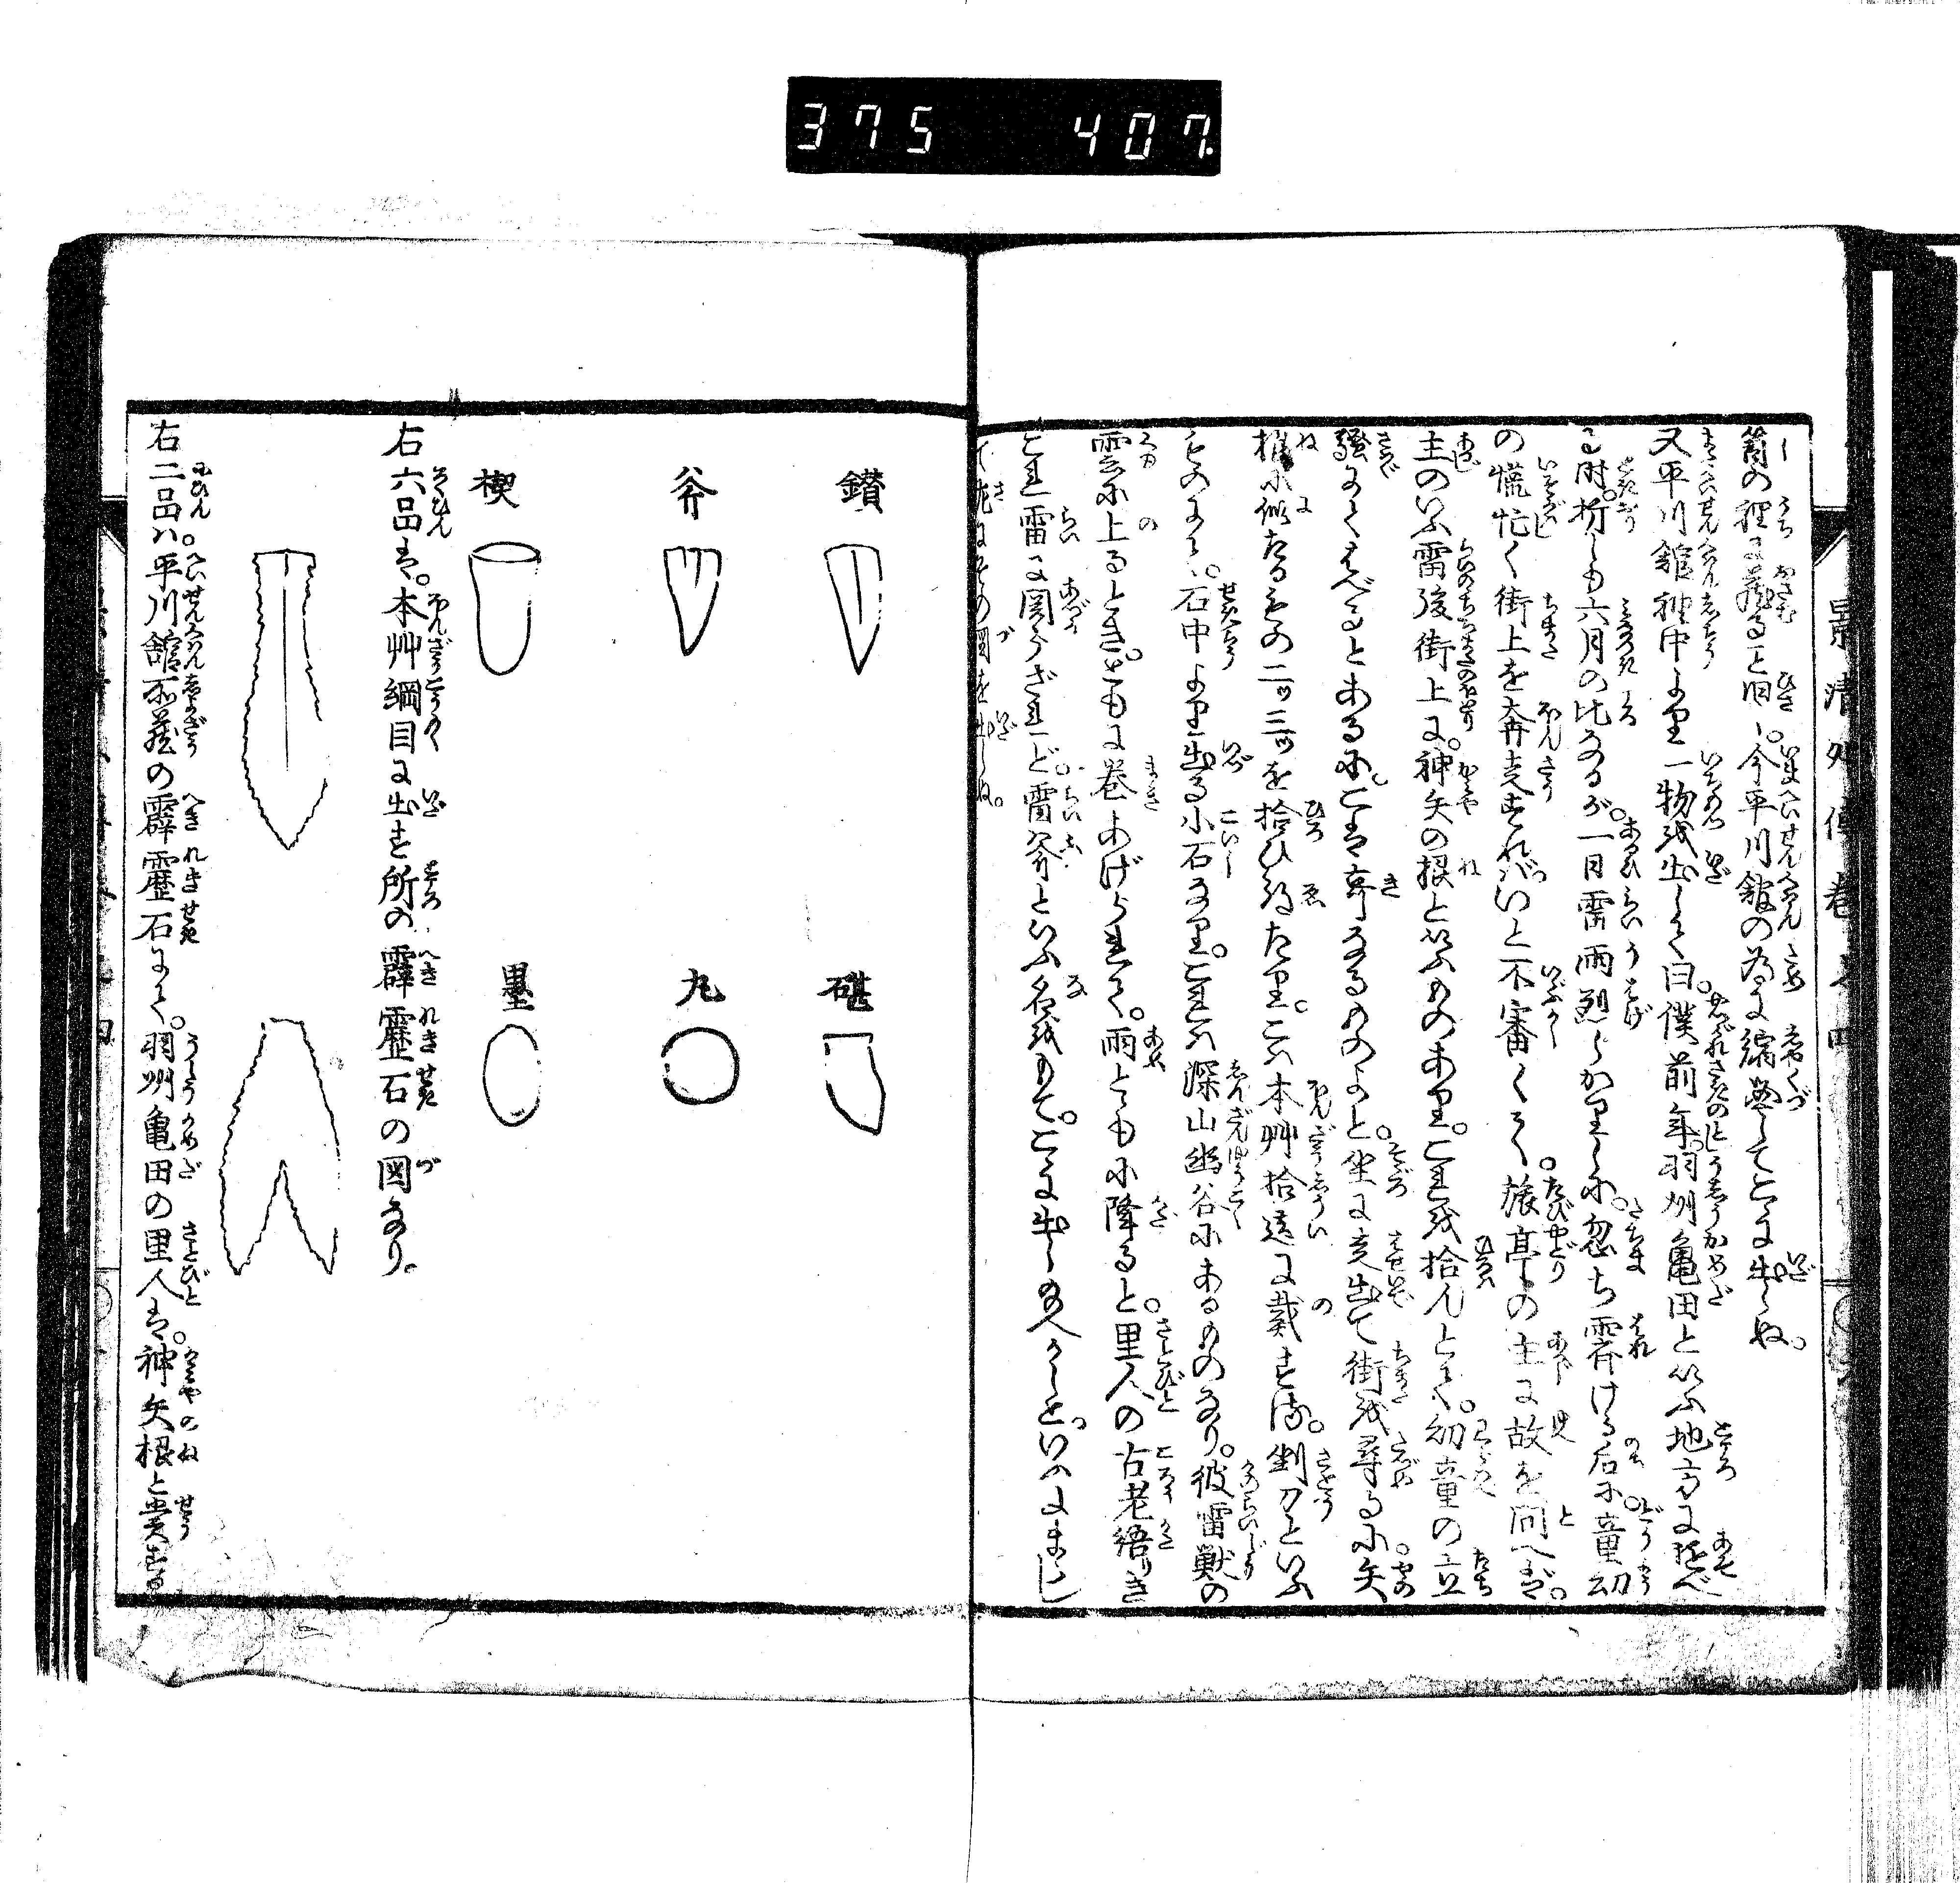 375 407
筥の裡に蔵ると旧し。今平川舘の為に縮啚してこゝに出しぬ。
又平川舘神中より一物を出して曰。僕前年羽州亀田といふ地方に遊べ
る時。折しも六月の比なるが。一日雷雨烈しかりしに。忽ち霽ける后に童幼
の慌忙く街上を奔走すれば。いと不審くて。旅亭の主に故を問へば。
主のいふ雷後街上に。神矢の根といふものあり。これを拾んとて。幼童の立
騒にてはべるとあるに。こは奇なるものよと。坐に走出て街を尋るに矢
根に似たるもの二ツ三ツを拾ひ得たり。こは本艸拾遺に載する。劉刀といふ
ものにて。石中より出る小石なり。これは深山幽谷にあるものなり。彼雷獣の
雲に上るとき。ともに巻あげられて。雨とともに降ると。里人の古老語りき
これ雷に関らざれど雷斧といふ名をもて。こゝに出しぬ人々しといのまに〳〵
て左にその図を出しぬ。
鑚
碪
斧
丸
楔
墨
右六品は。本艸綱目に出す所の霹靂石の図なり。
右二品ハ。平川舘所蔵の霹靂石にて。羽州亀田の里人は。神矢根と称する